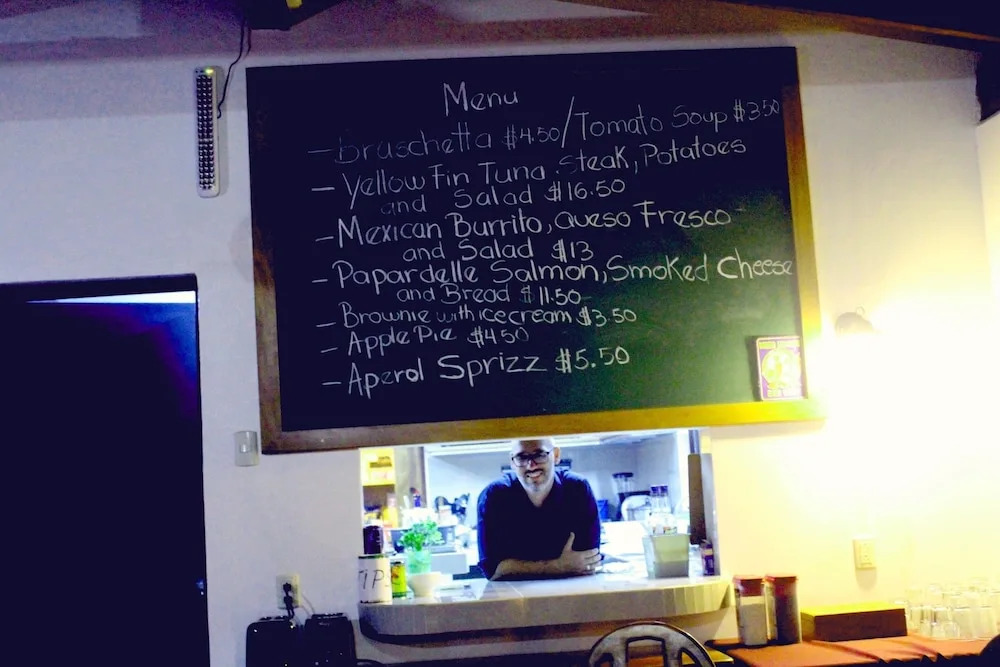 Menu
- Bruschetta $4.50/Tomato Soup $3.50
- Yellow Fin Tuna Steak, Potatoes
and Salad $16.50
- Mexican Burrito, Queso Fresco
and Salad $13
- Papardelle Salmon, Smoked Cheese
and Bread $11.50
- Brownie with ice cream $3.50
- Apple Pie $4.50
- Aperol Sprizz $5.50
TIPS